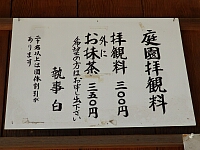 庭園拝観料
拝観料 三〇〇円
外に
お抹茶 三五〇円
希望の方はお申し出下さい
二十名以上は団体割引が
あります
執事 白